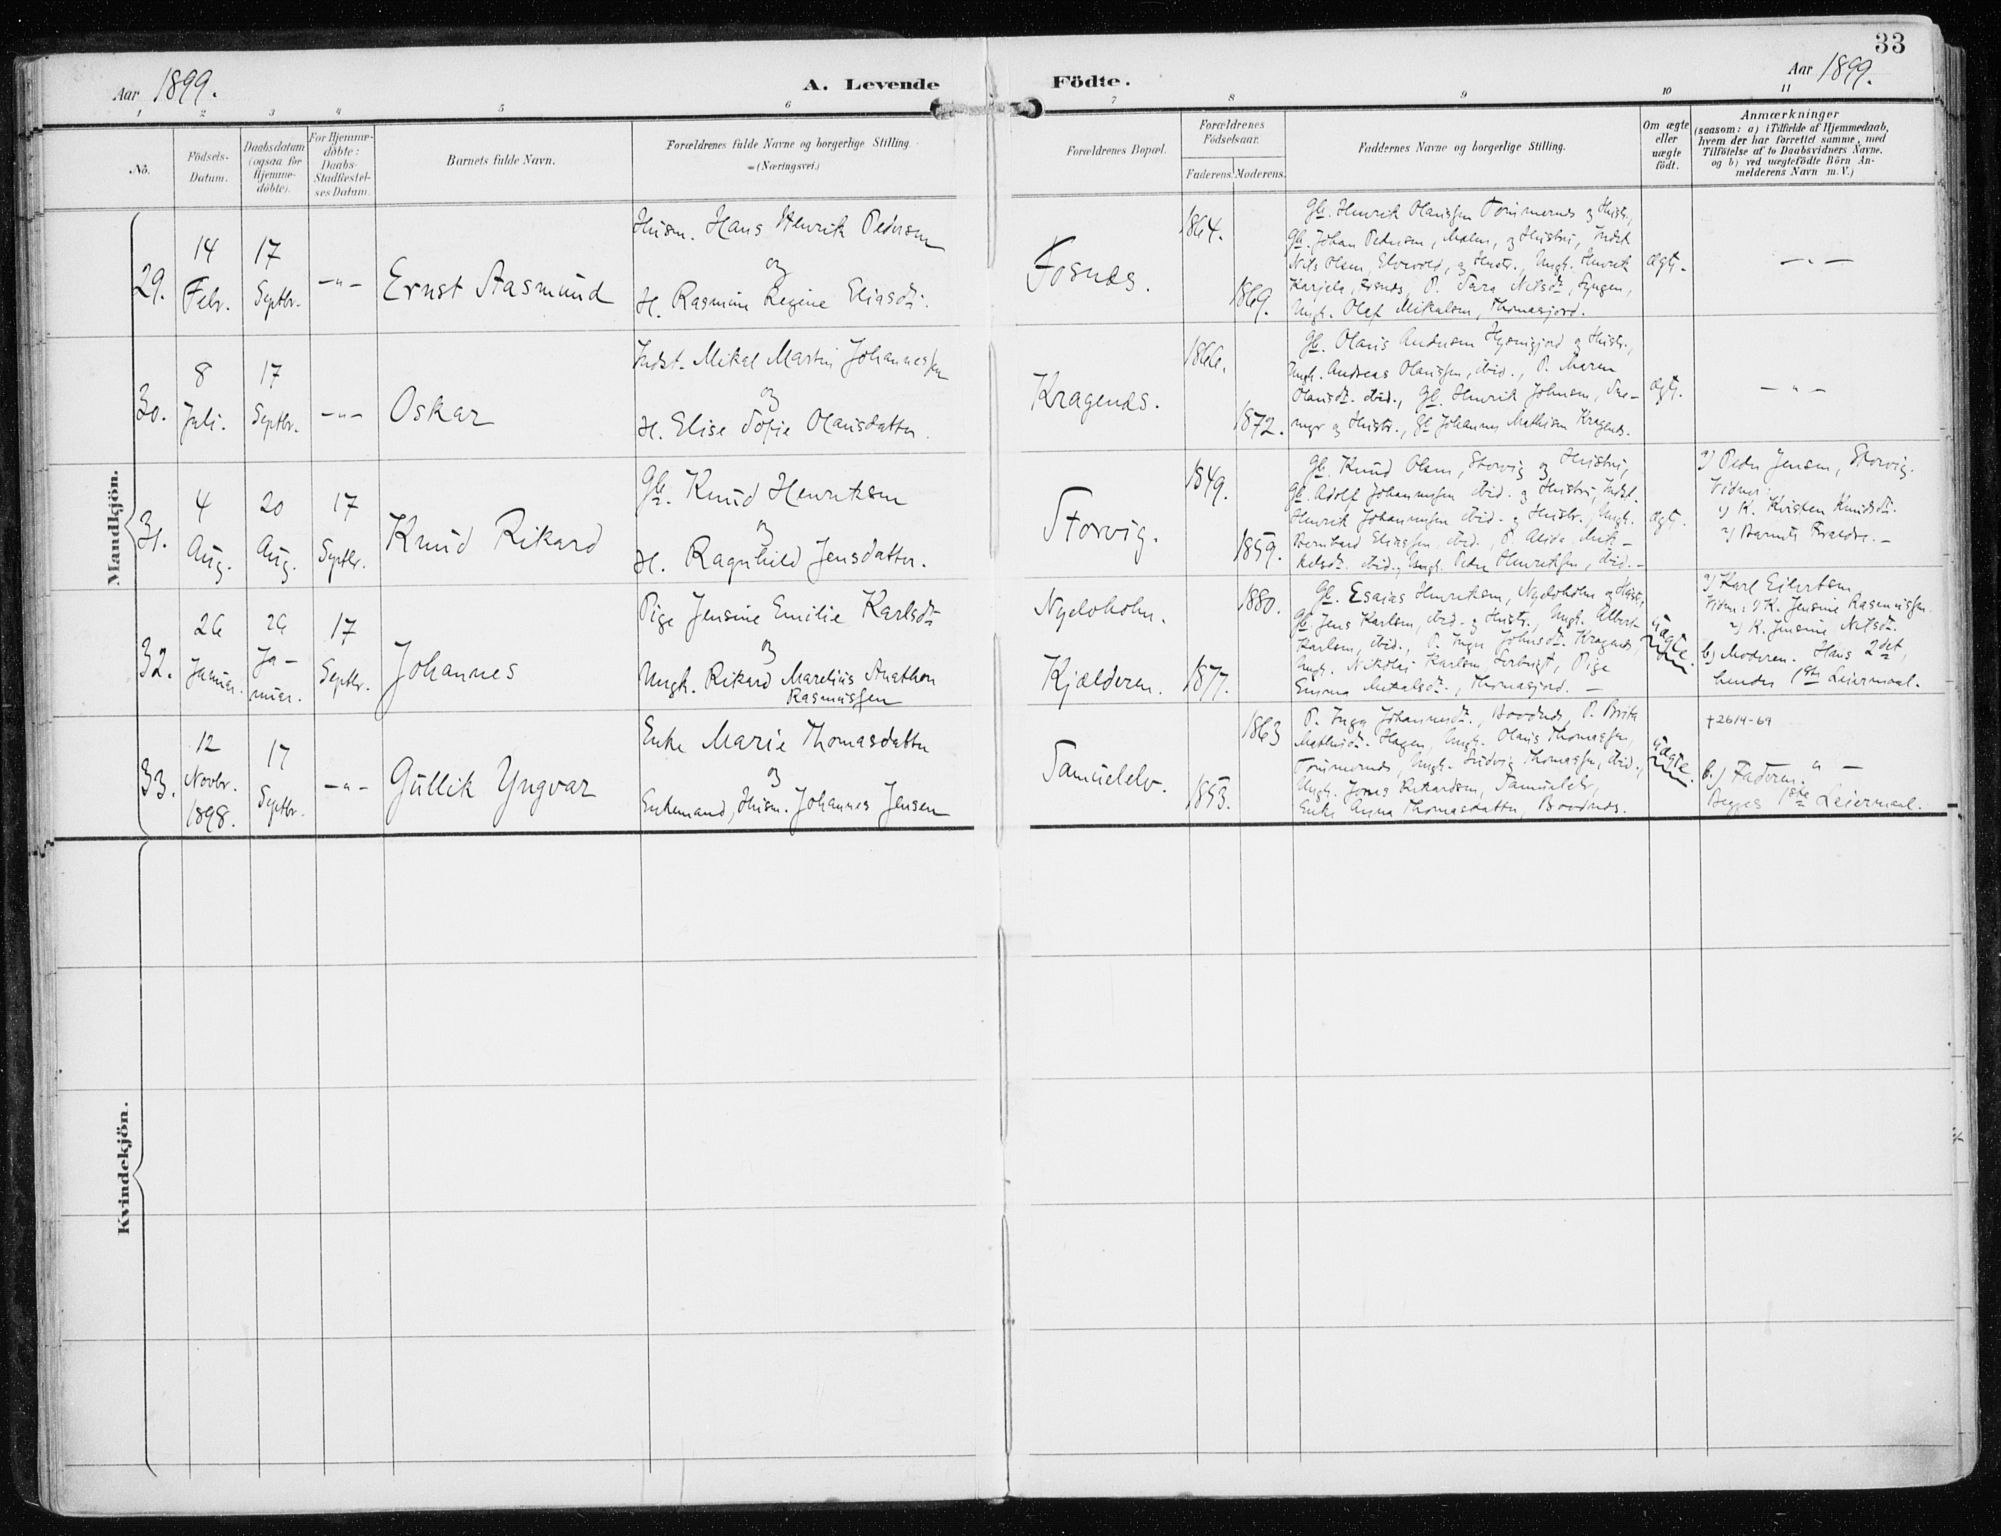 33
Aar 1899.
A. Levende
Födte.
Aar 1899.
1 2 3 4 5 6 7 8 9 10 11
No.
Födsels-
Datum.
Daabsdatum
(ogsaa for
Hjemme-
döbte).
For Hjemme-
döbte:
Daabs-
Stadfæstel-
ses Datum.
Barnets fulde Navn.
Forældrenes fulde Navne og borgerlige Stilling
(Næringsvei.)
Forældrenes Bopæl.
Forældrenes
Födselsaar.
Faderens. Moderens.
Faddernes Navne og borgerlige Stilling.
Om ægte
eller
uægte
födt.
Anmærkninger
(saasom: a) i Tilfælde af Hjemmedaab,
hvem der har forrettet samme, med
Tilföielse af to Daabsvidners Navne,
og b) ved uægtefödte Börn An-
melderens Navn m. V.)
Mandkjön.
29.
14
Febr.
17
Septbr.
— " —
Ernst Aasmund
Husm. Hans Henrik Pedersen
og
H. Rasmine Regine Eliasdtr.
Fosnes.
1864.
1869.
Gb. Henrik Olaussen Tommernes og Hustr.,
Gb. Johan Pedersen, Malen, og Hustru, Indst
Nils Olsen, Elvevold, og Hustr., Ungk. Henrik
Karjela, Fosnes, P. Sara Nilsdtr, Lyngen,
Ungk. Olaf Mikalsen, Thomasjord.
ægt.
— " —
30.
8
Juli.
17
Septbr.
— " —
Oskar
Indst. Mikal Martin Johannessen
og
H. Elise Sofie Olausdatter.
Kragenes.
1866.
1872.
Gb. Olaus Andersen og Hustr.,
Ungk. Andreas Olaussen, ibid., P. Maren
Olausdtr. ibid., Gb. Henrik Johnsen,
og Hustr., Gb Johannes Mathisen Kragenes.
ægt.
— " —
31.
4
Aug.
20
Aug.
17
Septbr.
Knud Rikard
Gb. Knud Henriksen
og
H. Ragnhild Jensdatter.
Storvig.
1849.
1859.
Gb. Knud Olsen, Storvig og Hustru,
Gb. Adolf Johannessen ibid. og Hustru, Indst.
Henrik Johannessen ibid. og Hustr., Ungk.
Bernhard Eliassen, ibid., P. Alida Mik-
kelsdtr. ibid., Ungk. Peder Henriksen, ibid. —
ægt.
a) Peder Jensen, Storvig.
Vidner:
1) K. Kristen Knudsdtr.
2) Barnets Forældre. —
32.
26
Januar.
26
Ja-
nuar.
17
Septbr.
Johannes
Pige Jensine Emilie Karlsdtr
og
Ungk. Rikard Marelius Anathon
Rasmussen
Nyeloholm.
Kjælderen.
1880.
1877.
Gb. Esaias Henriksen, Nyeloholm og Hustr,
Gb. Jens Karlsen, ibid. og Hustr., Ungk. Albert
Karlsen, ibid., P. Inga Johnsdtr. Kragenes,
Ungk. Nikolai Karlsen, Sørbugt, Pige
Emma Mikalsdtr., Thomasjord. —
uægte.
a) Karl Eilertsen
Vidner: 1) K. Jensine Rasmussen.
2) K. Jensine Nilsdtr.
b) Moderen. Hans 2det,
hendes 1ste Leiermaal.
33.
12
Novbr.
1898.
17
Septbr.
— " —
Gullik Yngvar
Enke Marie Thomasdatter
og
Enkemand, Husm. Johannes Jensen
Samuelelv.
1863
1853.
P. Inga Johannesdtr., Boodnes, P. Brita
Mathisdtr. Hagen, Ungk. Olaus Thomassen,
Tommernes, Ungk. Ludvig Thomassen, ibid.,
Ungk. Jonas Rikardsen, Samuelelv,
Enke Anna Thomasdatter, Boodnes.
uægte.
+ 2614-69
— " —
b.) Faderen.
Begges 1ste Leiermaal.
Kvindekjön.